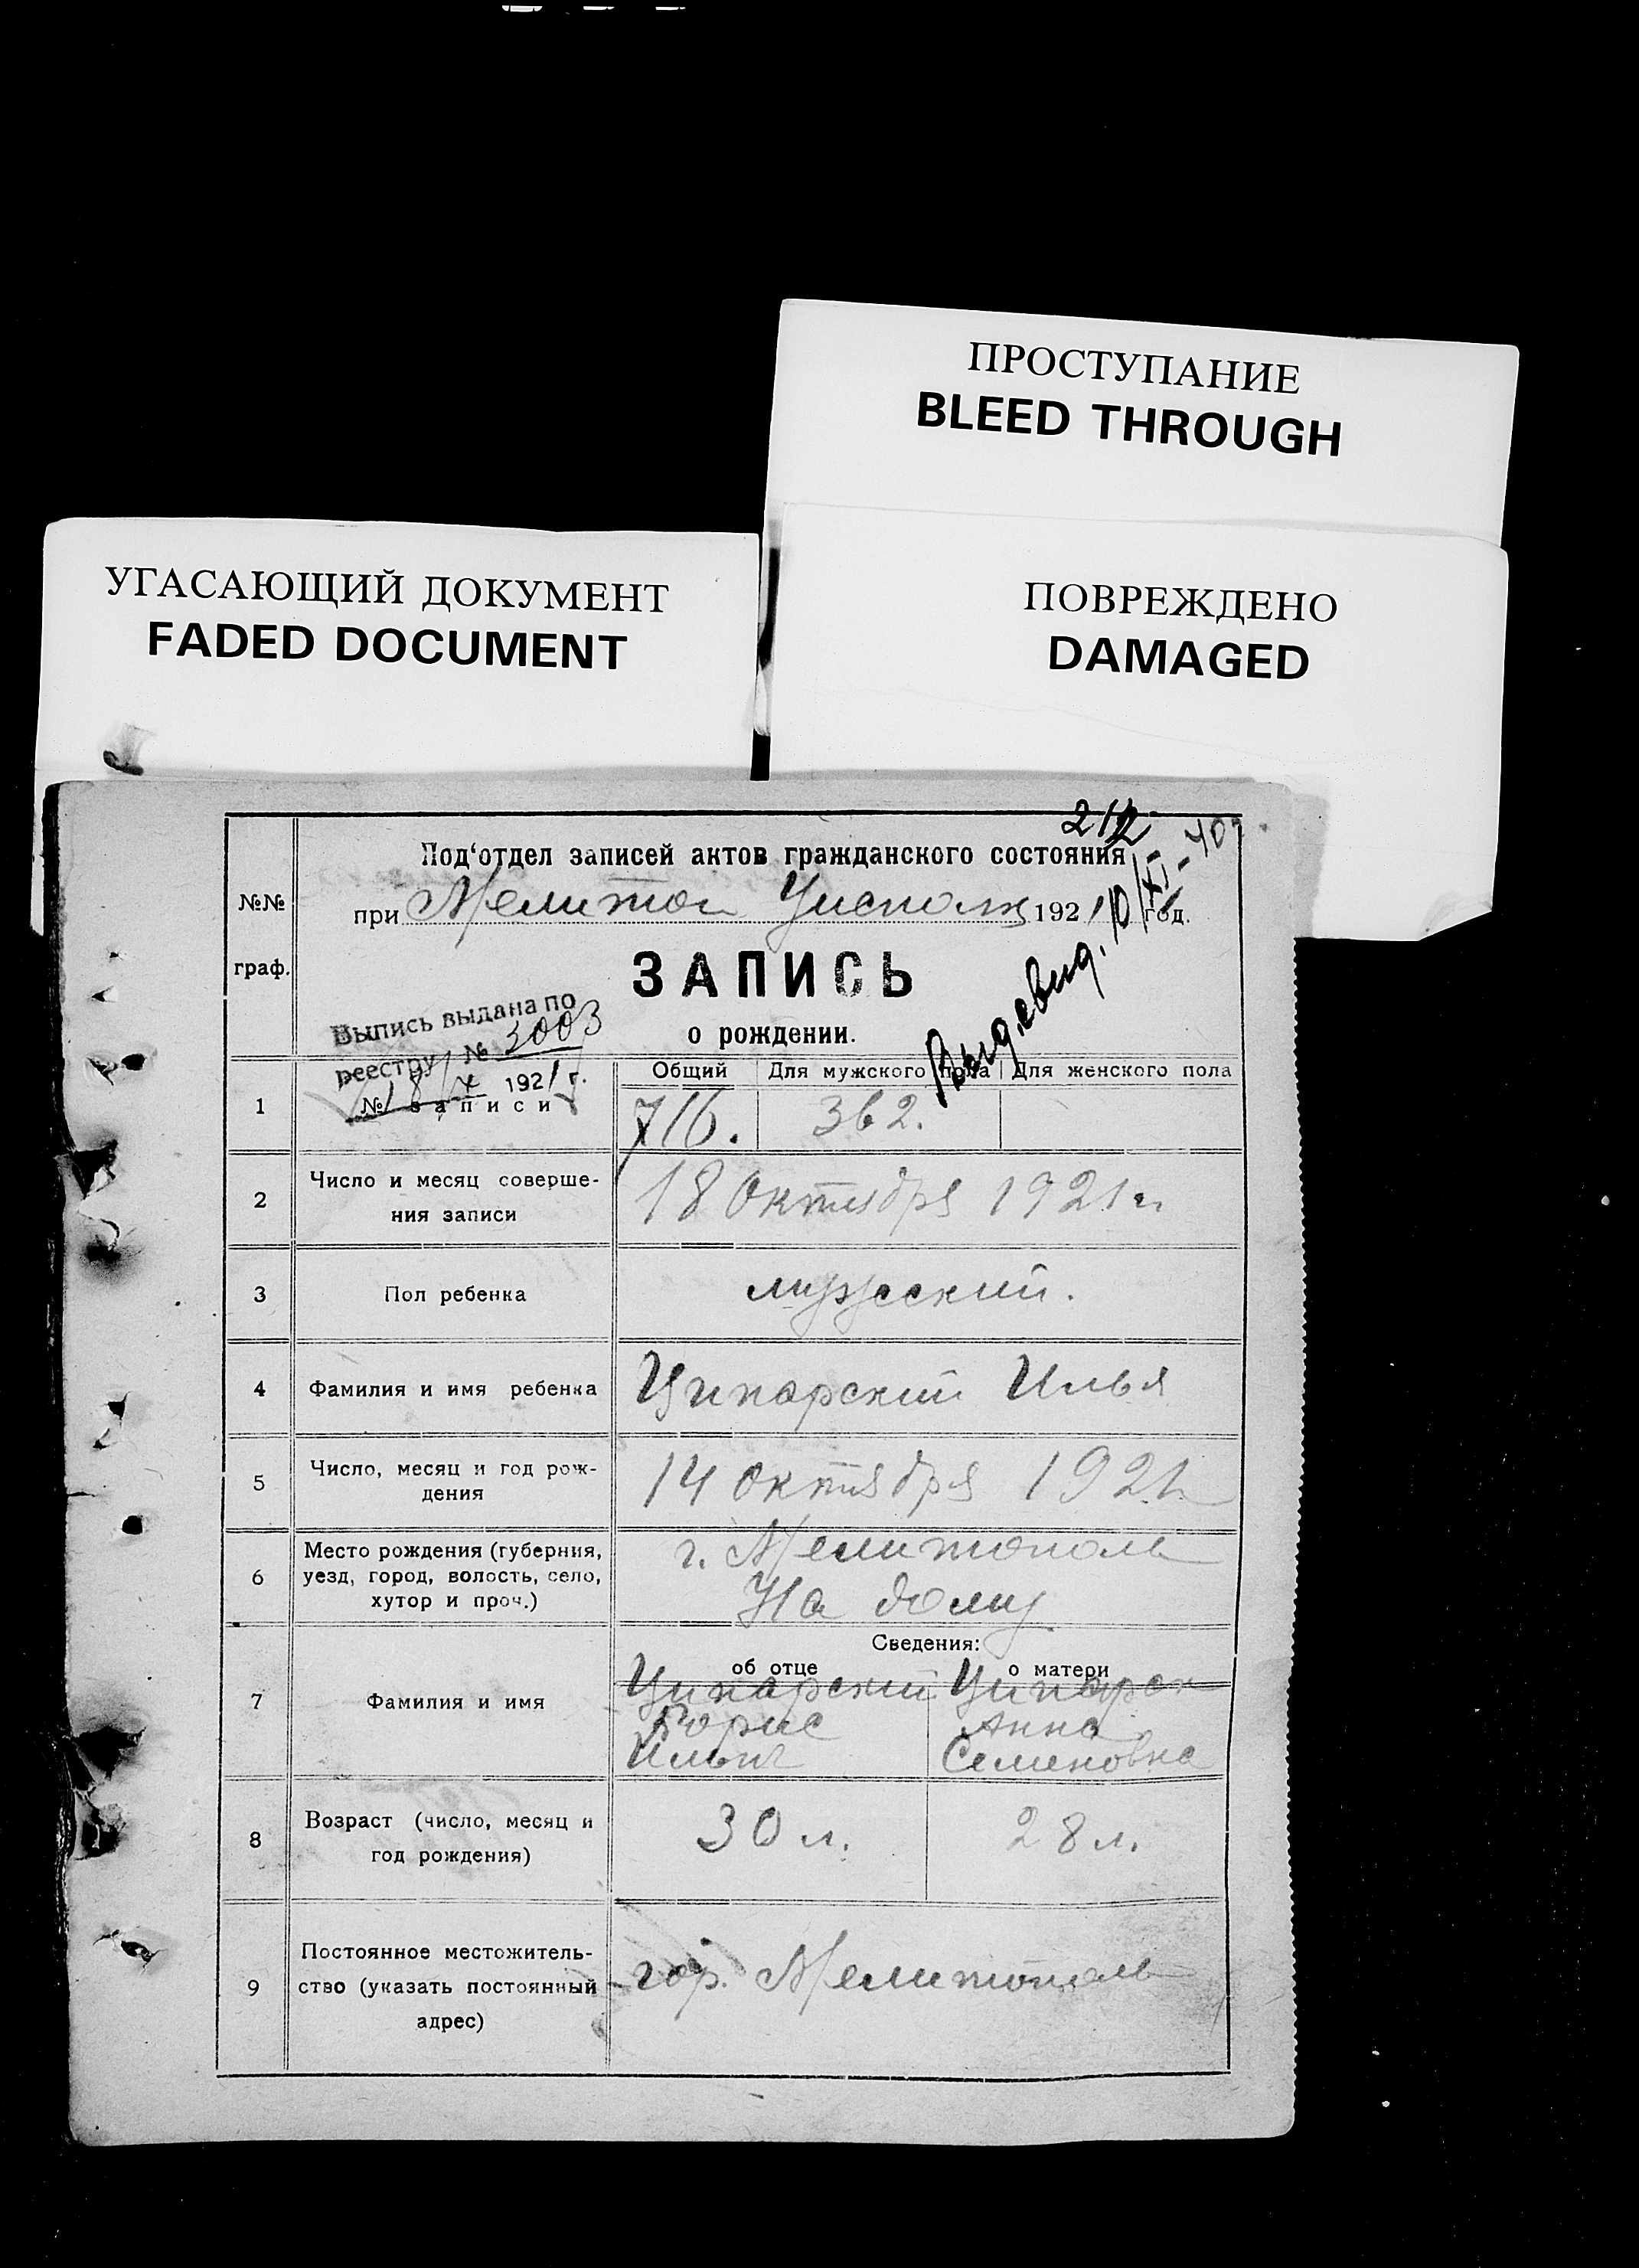 ПРОСТУПАНИЕ
BLEED THROUGH
УГАСАЮЩИЙ ДОКУМЕНТ
FADED DOCUMENT
ПОВРЕЖДЕНО
DAMAGED
212
Под‘отдел записей актов гражданского состояния
№№
граф.
при Мелитоп Уисполк 1921 год.
Выд. свид. 10/XI-40
ЗАПИСЬ
о рождении.
Выпись выдана по
реестру № 3003
18/X 1921 г.
1
№ записи
Общий
Для мужского пола
Для женского пола
716.
362.
2
Число и месяц соверше-
ния записи
18 октября 1921 г
3
Пол ребенка
мужеский.
4
Фамилия и имя ребенка
Ципарский Илья
5
Число, месяц и год рож-
дения
14 октября 1921
6
Место рождения (губерния,
уезд, город, волость, село,
хутор и проч.)
г. Мелитополь
На дому
Сведения:
об отце
о матери
7
Фамилия и имя
Ципарский
Борис
Ильич
Ципарск
Анна
Семеновна
8
Возраст (число, месяц и
год рождения)
30 л.
28 л.
9
Постоянное местожитель-
ство (указать постоянный
адрес)
гор. Мелитополь